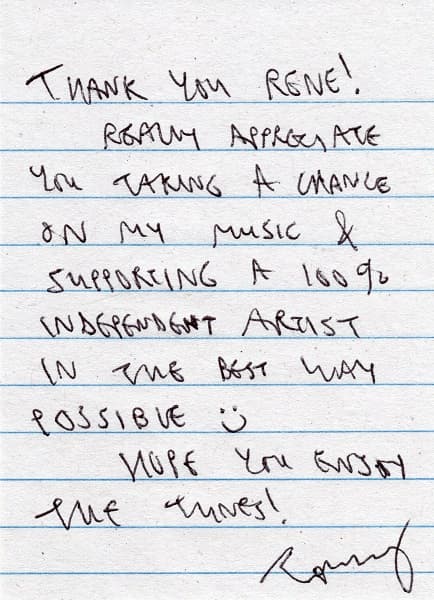 THANK YOU RENE!
REALLY APPRECIATE
YOU TAKING A CHANCE
ON MY MUSIC &
SUPPORTING A 100%
INDEPENDENT ARTIST
IN THE BEST WAY
POSSIBLE :)
HOPE YOU ENJOY
THE TUNES!